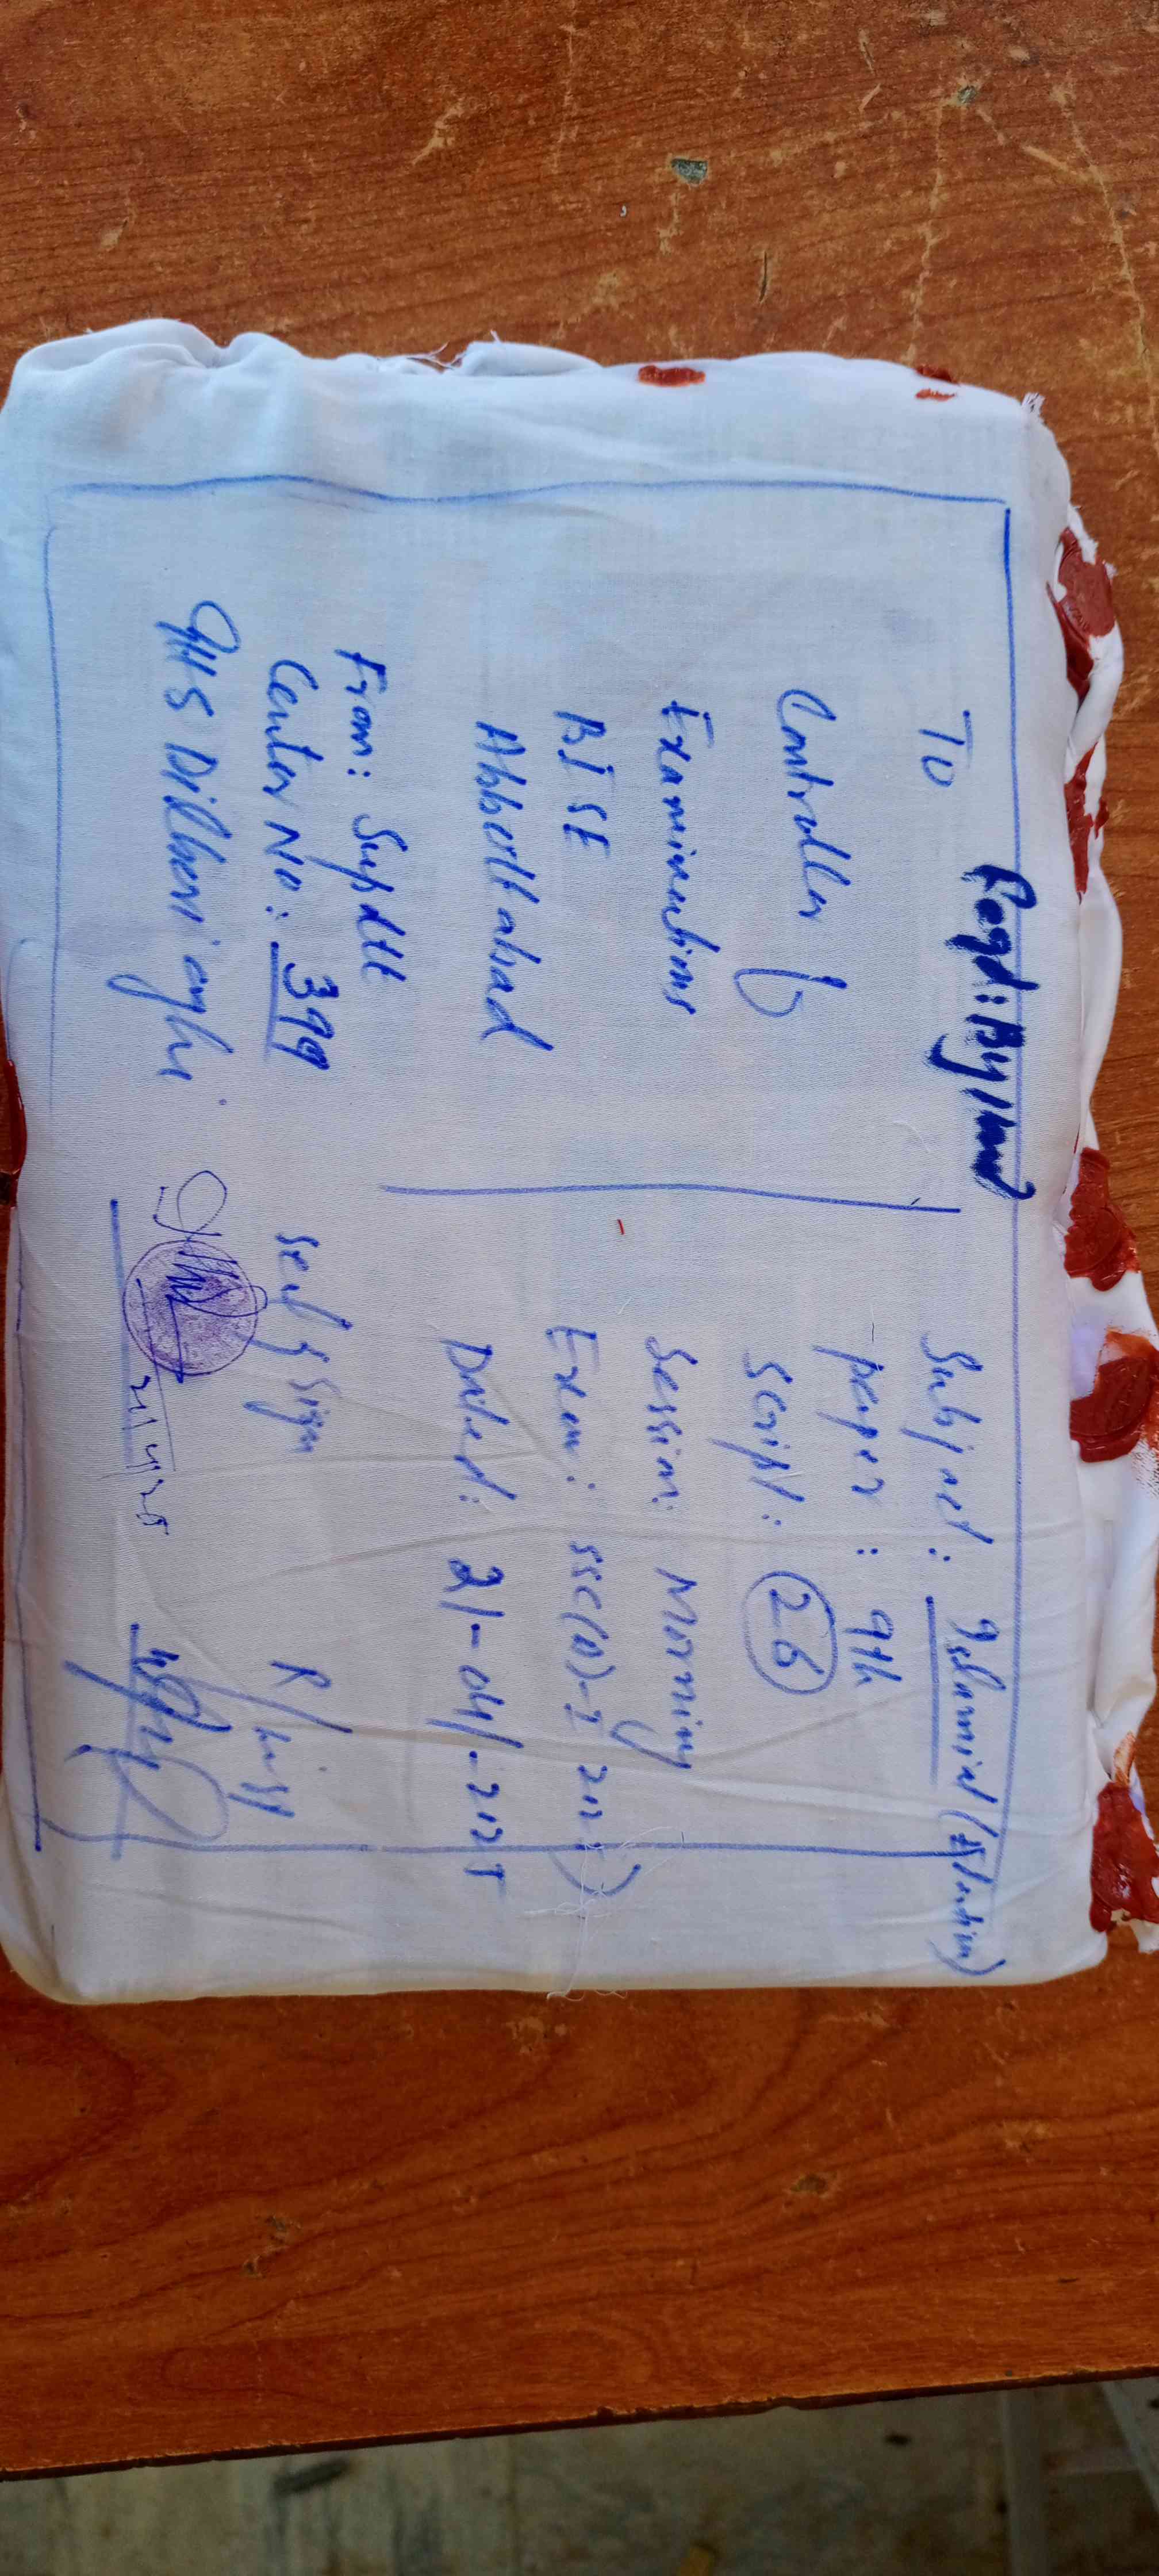 Regd: By Hand
To
Controller of
Examinations
BISE
Abbottabad
From: Supdtt
Center No: 399
GHS Dilbori oghi
Subject:
paper: 9th
Script: 26
Session: Morning
Exam: SSC(A)-I 2025)
Dated: 21-04-2025
Self Sign
21/4/25
R/